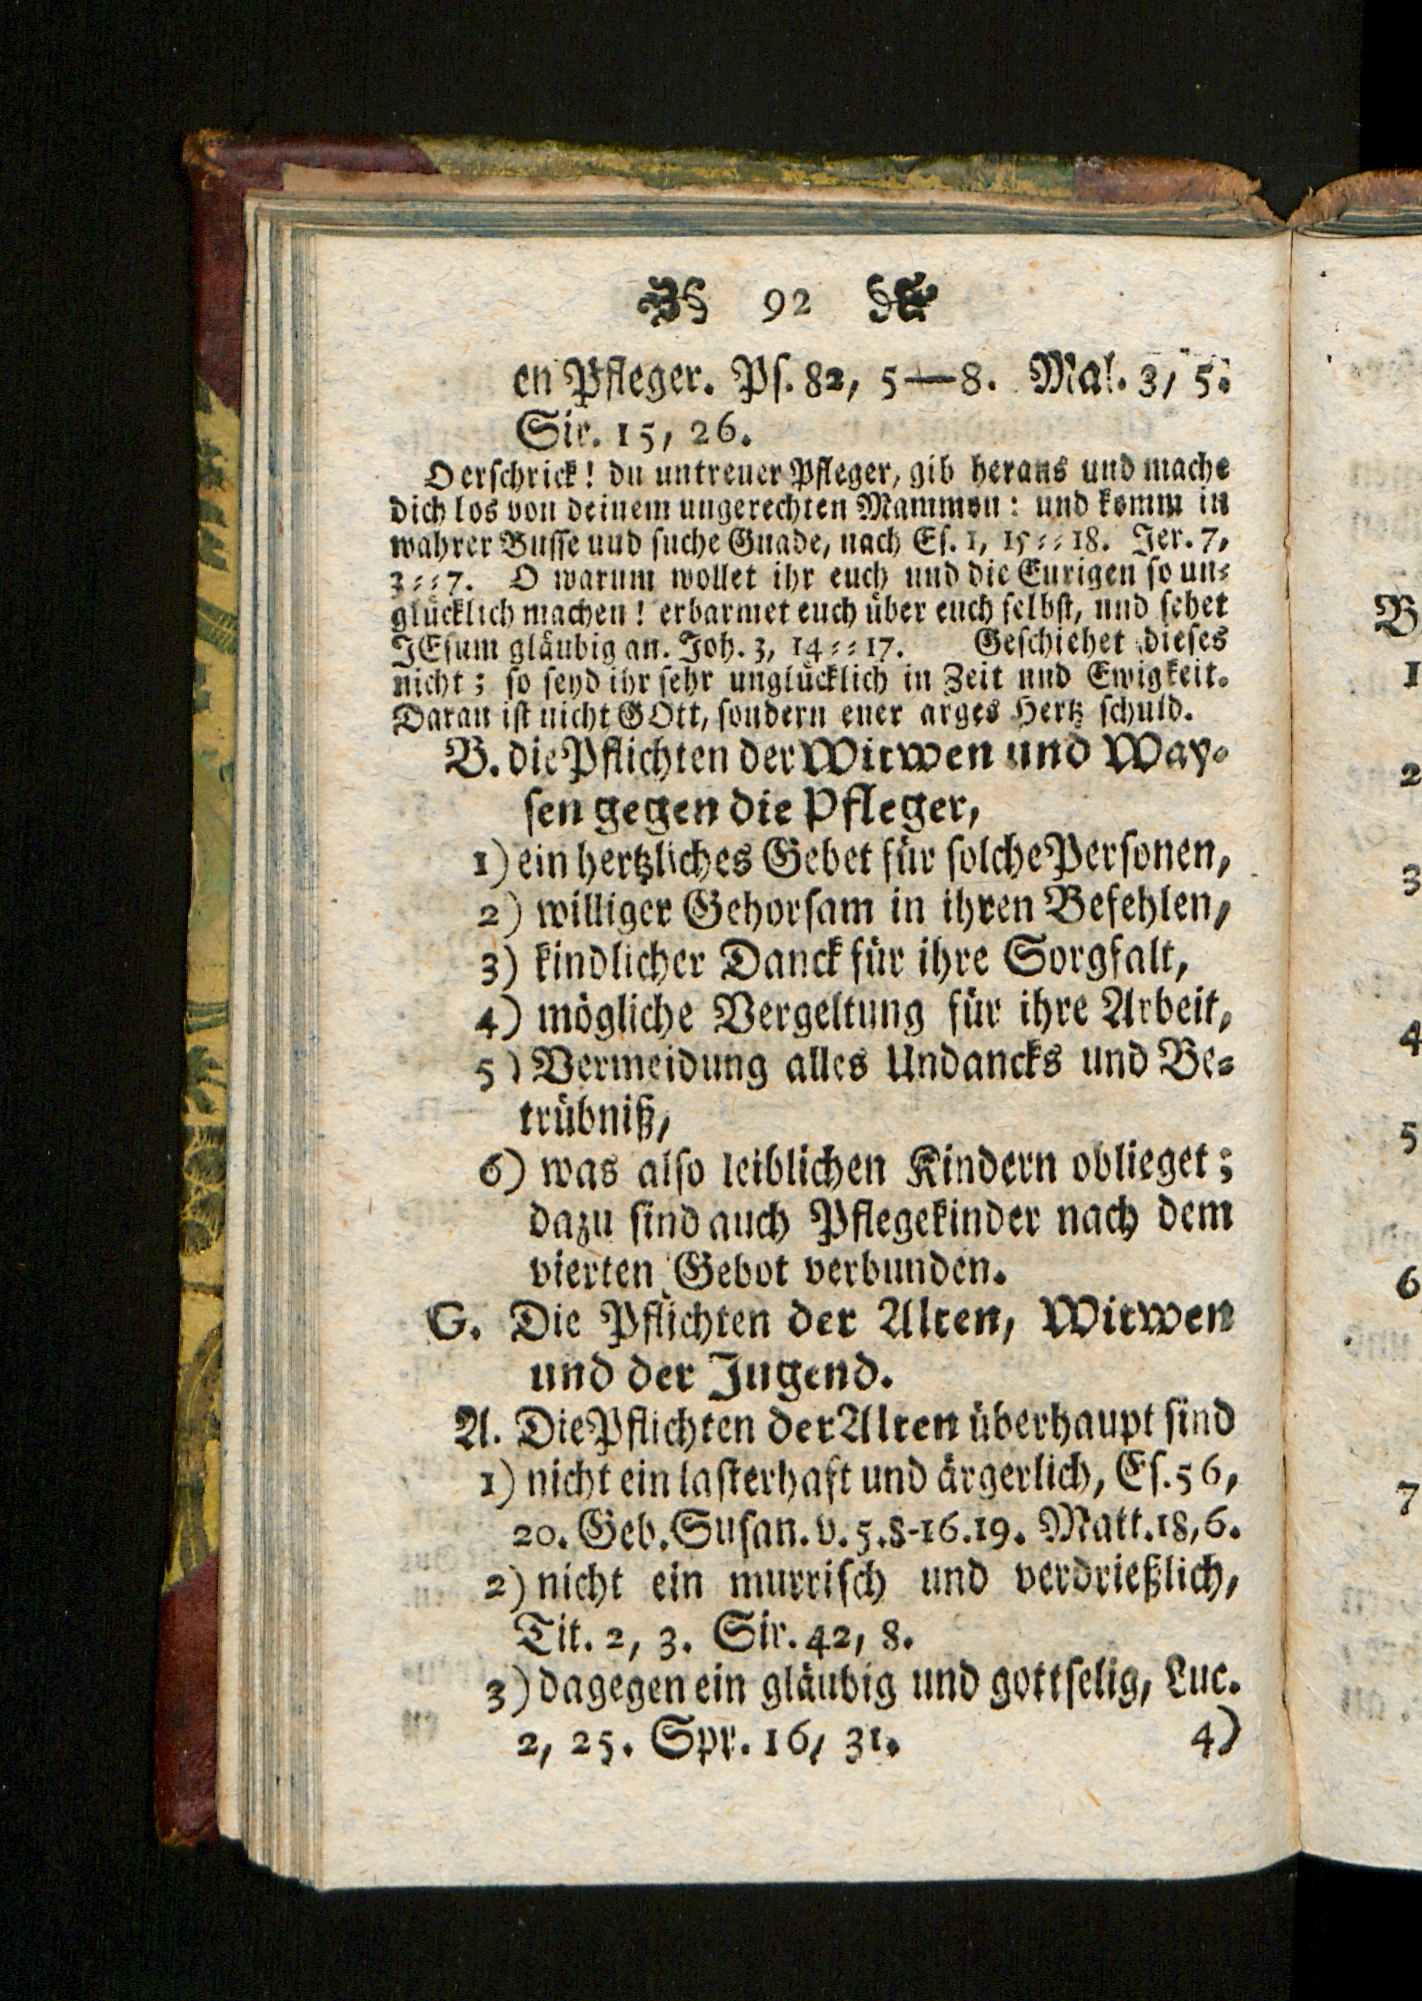 92
en Pfleger. Pſ. 82, 5—8. Mal. 3, 5.
Sir. 15, 26.
O erſchrick! du untreuer Pfleger, gib heraus und mache
dich los von deinem ungerechten Mammon: und komm in
wahrer Buſſe und ſuche Gnade, nach Eſ. 1, 15⸗⸗18. Jer. 7,
3⸗⸗7. O warum wollet ihr euch und die Eurigen ſo un⸗
glücklich machen! erbarmet euch über euch ſelbſt, und ſehet
JEſum gläubig an. Joh. 3, 14⸗⸗17. Geſchiehet dieſes
nicht; ſo ſeyd ihr ſehr unglücklich in Zeit und Ewigkeit.
Daran iſt nicht GOtt, ſondern euer arges Hertz ſchuld.
B. die Pflichten der Witwen und Way⸗
ſen gegen die Pfleger,
1) ein hertzliches Gebet für ſolche Perſonen,
2) williger Gehorſam in ihren Befehlen,
3) kindlicher Danck für ihre Sorgfalt,
4) mögliche Vergeltung für ihre Arbeit,
5) Vermeidung alles Undancks und Be⸗
trübniß,
6) was alſo leiblichen Kindern oblieget;
dazu ſind auch Pflegekinder nach dem
vierten Gebot verbunden.
G. Die Pflichten der Alten, Witwen
und der Jugend.
A. Die Pflichten der Alten überhaupt ſind
1) nicht ein laſterhaft und ärgerlich, Eſ. 56,
20. Geb. Suſan. v. 5. 8-16. 19. Matt. 18, 6.
2) nicht ein murriſch und verdrießlich,
Tit. 2, 3. Sir. 42, 8.
3) dagegen ein gläubig und gottſelig, Luc.
2, 25. Spr. 16, 31. 4)
B
1
2
3
4
5
6
7